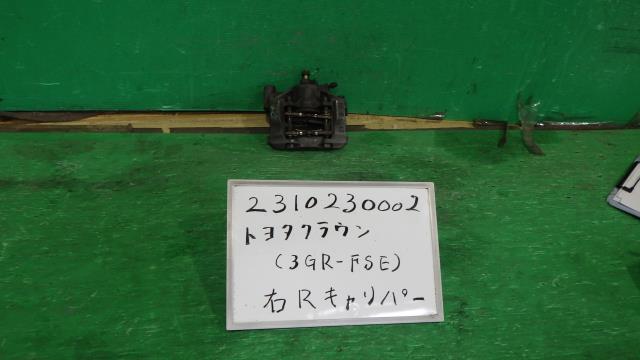 2310230002
トヨタクラウン
(3GR-FSE)
右Rキャリパー